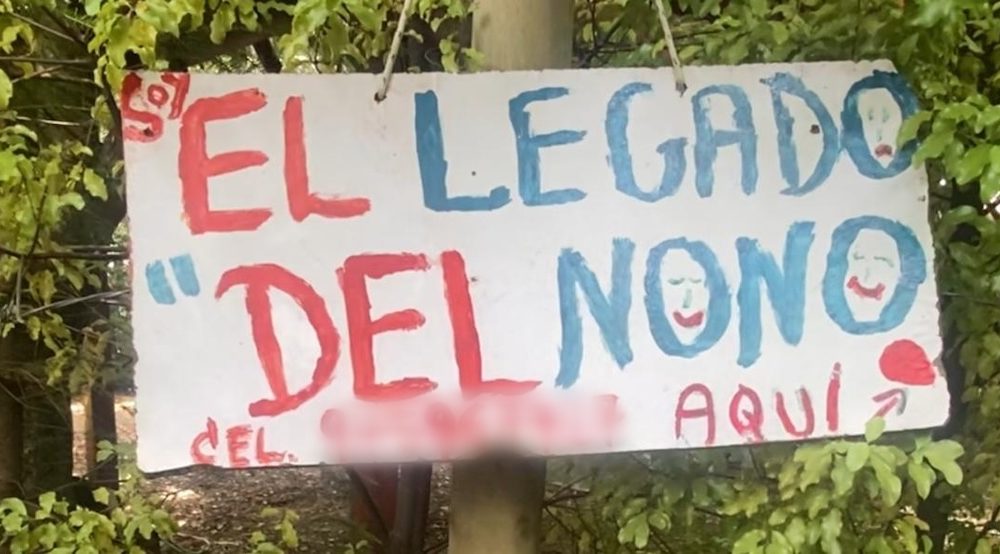 SOY EL LEGADO
"DEL NONO
CEL. AQUÍ